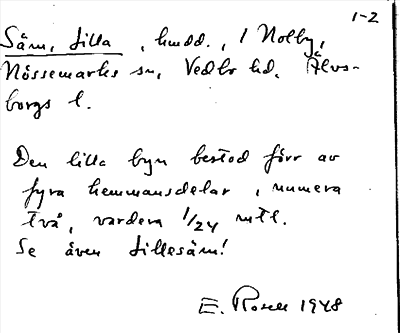 1-2
Säm, Lilla, hmdd., i Nolby,
Nössemarks sn, Vedbo hd. Älvs-
borgs l.
Den lilla byn bestod förr av
fyra hemmansdelar, numera
två, vardera 1/24 mtl.
Se även Lillesäm!
E. Rosell 1948